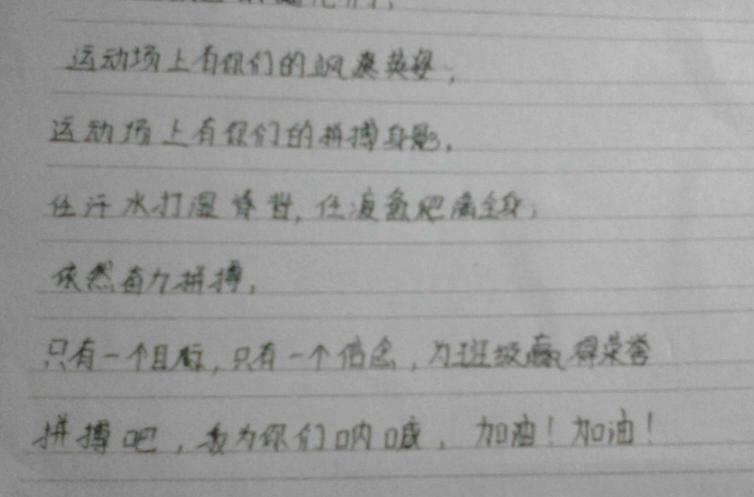 运动场上有你们的飒爽英姿，
运动场上有你们的拼搏身影。
任汗水打湿脊背，任疲惫爬满全身，
依然奋力拼搏。
只有一个目标，只有一个信念，为班级赢得荣誉
拼搏吧，我为你们呐喊，加油！加油！